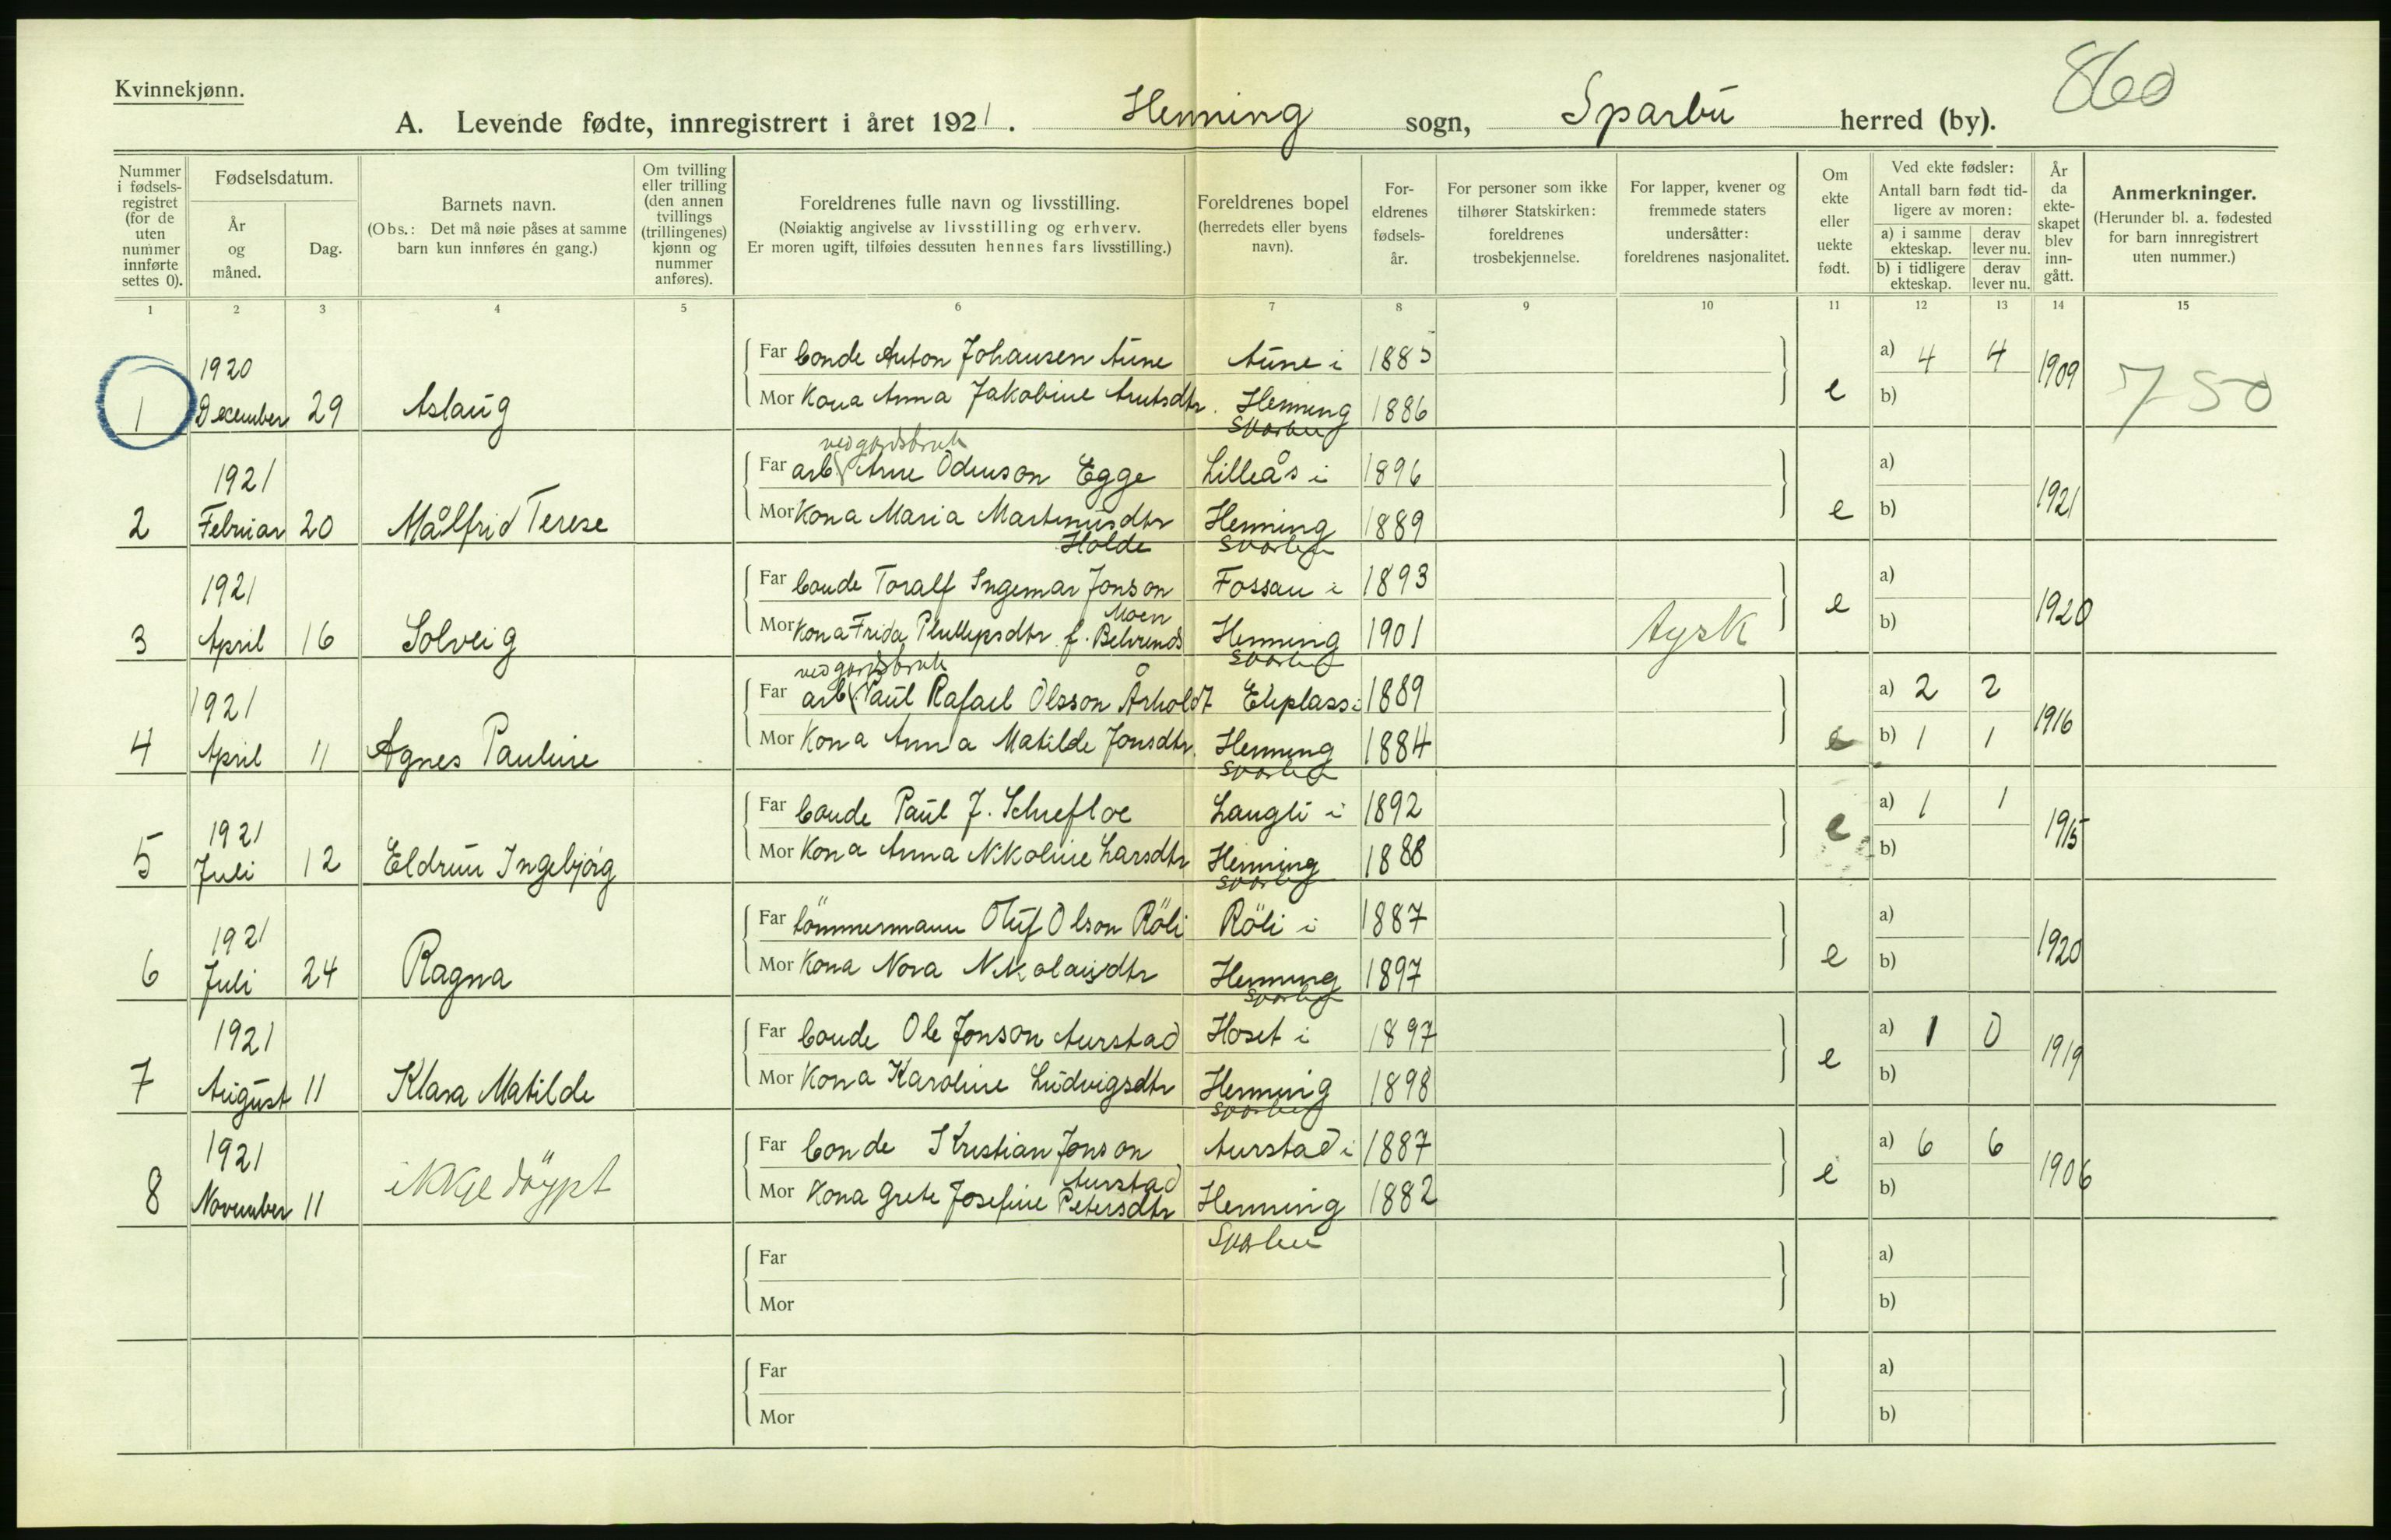 Kvinnekjønn.
860
A. Levende fødte, innregistrert i året 1921. Henning sogn, Sparbu herred (by).
Nummer i fødsels-registret (for de uten nummer innførte settes 0).
Fødselsdatum.
År og måned.
Dag.
Barnets navn.
(Obs.: Det må nøie påses at samme barn kun innføres én gang.)
Om tvilling eller trilling (den annen tvillings (trillingenes) kjønn og nummer anføres).
Foreldrenes fulle navn og livsstilling.
(Nøiaktig angivelse av livsstilling og erhverv.
Er moren ugift, tilføies dessuten hennes fars livsstilling.)
Foreldrenes bopel
(herredets eller byens navn).
For-eldrenes fødsels-år.
For personer som ikke tilhører Statskirken: foreldrenes trosbekjennelse.
For lapper, kvener og fremmede staters undersåtter: foreldrenes nasjonalitet.
Om ekte eller uekte født.
Ved ekte fødsler:
Antall barn født tid-ligere av moren:
a) i samme ekteskap.
derav lever nu.
b) i tidligere ekteskap.
derav lever nu.
År da ekte-skapet blev inn-gått.
Anmerkninger.
(Herunder bl. a. fødested for barn innregistrert uten nummer.)
1 2 3 4 5 6 7 8 9 10 11 12 13 14 15
1920
1 December 29 Aslaug
Far bonde Anton Johansen Aune Aune i 1885 a) 4 4
Mor Kona Anna Jakobine Arntsdtr. Henning 1886 e b) 1909 750
Sparbu
ved gardsbruk
1921
2 Februar 20 Målfrid Terese
Far arb. Arne Odinson Egge Lilleås i 1896 a)
Mor Kona Maria Martinusdtr Henning 1889 e b) 1921
Holde Sparbu
1921
3 April 16 Solveig
Far bonde Toralf Ingemar Jonson Fossan i 1893 e a)
Moen
Mor Kona Frida Phillipsdtr f. Behrends Henning 1901 tysk b) 1920
Sparbu
ved gardsbruk
1921
4 April 11 Agnes Pauline
Far arb. Paul Rafael Olsson Årholdt Ekplass i 1889 a) 2 2
Mor Kona Anna Matilde Jonsdtr. Henning 1884 e b) 1 1 1916
Sparbu
1921
5 Juli 12 Eldrun Ingebjørg
Far bonde Paul J. Schrefloe Langli i 1892 a) 1 1
Mor Kona Anna Nikoline Larsdtr Henning 1888 e b) 1915
Sparbu
1921
6 Juli 24 Ragna
Far tömmermann Oluf Olson Röli Röli i 1887 a)
Mor Kona Nora Nikolaisdtr Henning 1897 e b) 1920
Sparbu
1921
7 August 11 Klara Matilde
Far bonde Ole Jonson Aurstad Hoset i 1897 a) 1 0
Mor Kona Karoline Ludvigsdtr Henning 1898 e b) 1919
Sparbu
1921
8 November 11 ikkje döypt
Far bonde Kristian Jonson Aurstad i 1887 a) 6 6
Aurstad
Mor Kona Grete Josefine Petersdtr Henning 1882 e b) 1906
Sparbu
Far a)
Mor b)
Far a)
Mor b)